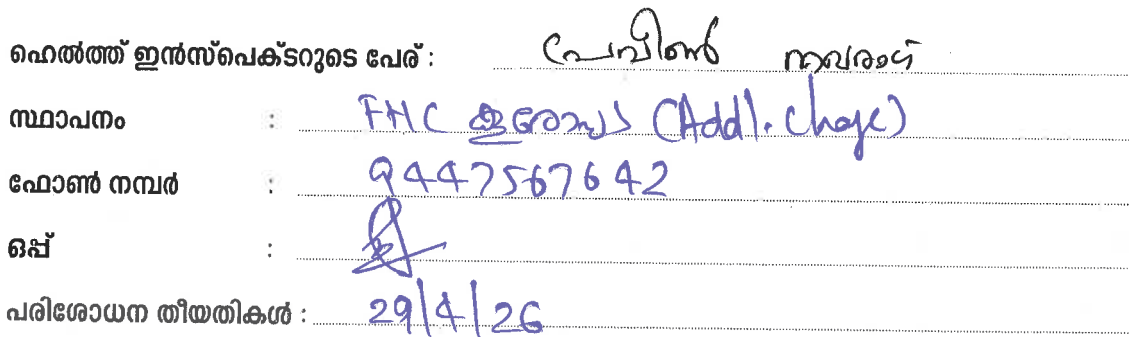 ഹെൽത്ത് ഇൻസ്പെക്ടറുടെ പേര് : പ്രവീൺ
സ്ഥാപനം : FHC കൂരോപ്പട (Addl. Charge)
ഫോൺ നമ്പർ : 9447567642
ഒപ്പ് :
പരിശോധന തീയതികൾ : 29/4/26